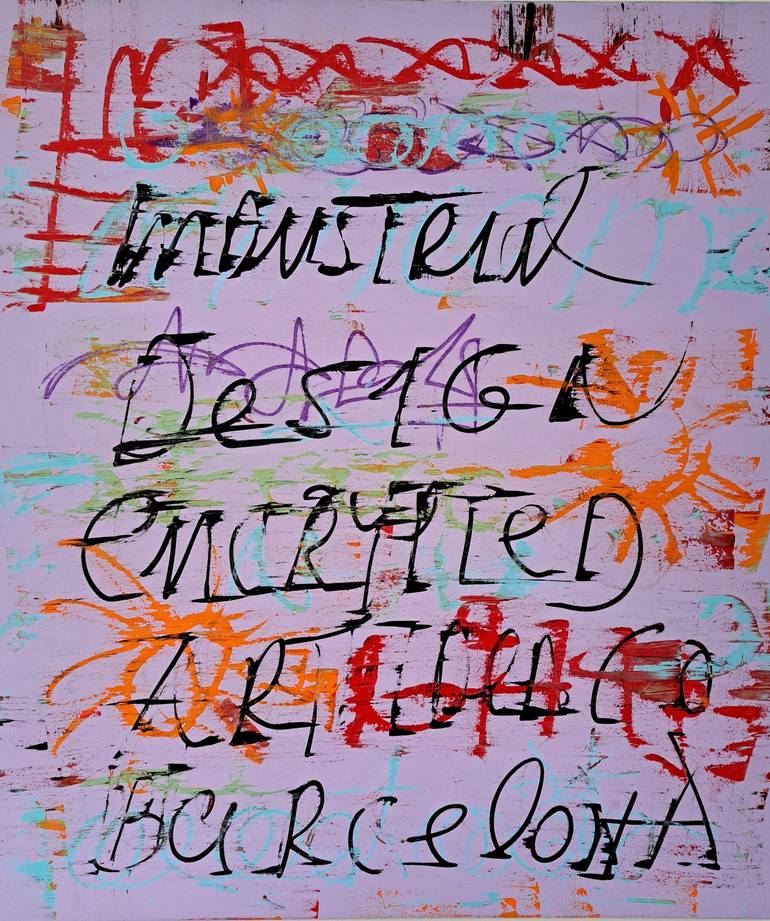 Industrial
Design
Encrypted
Art
Barcelona